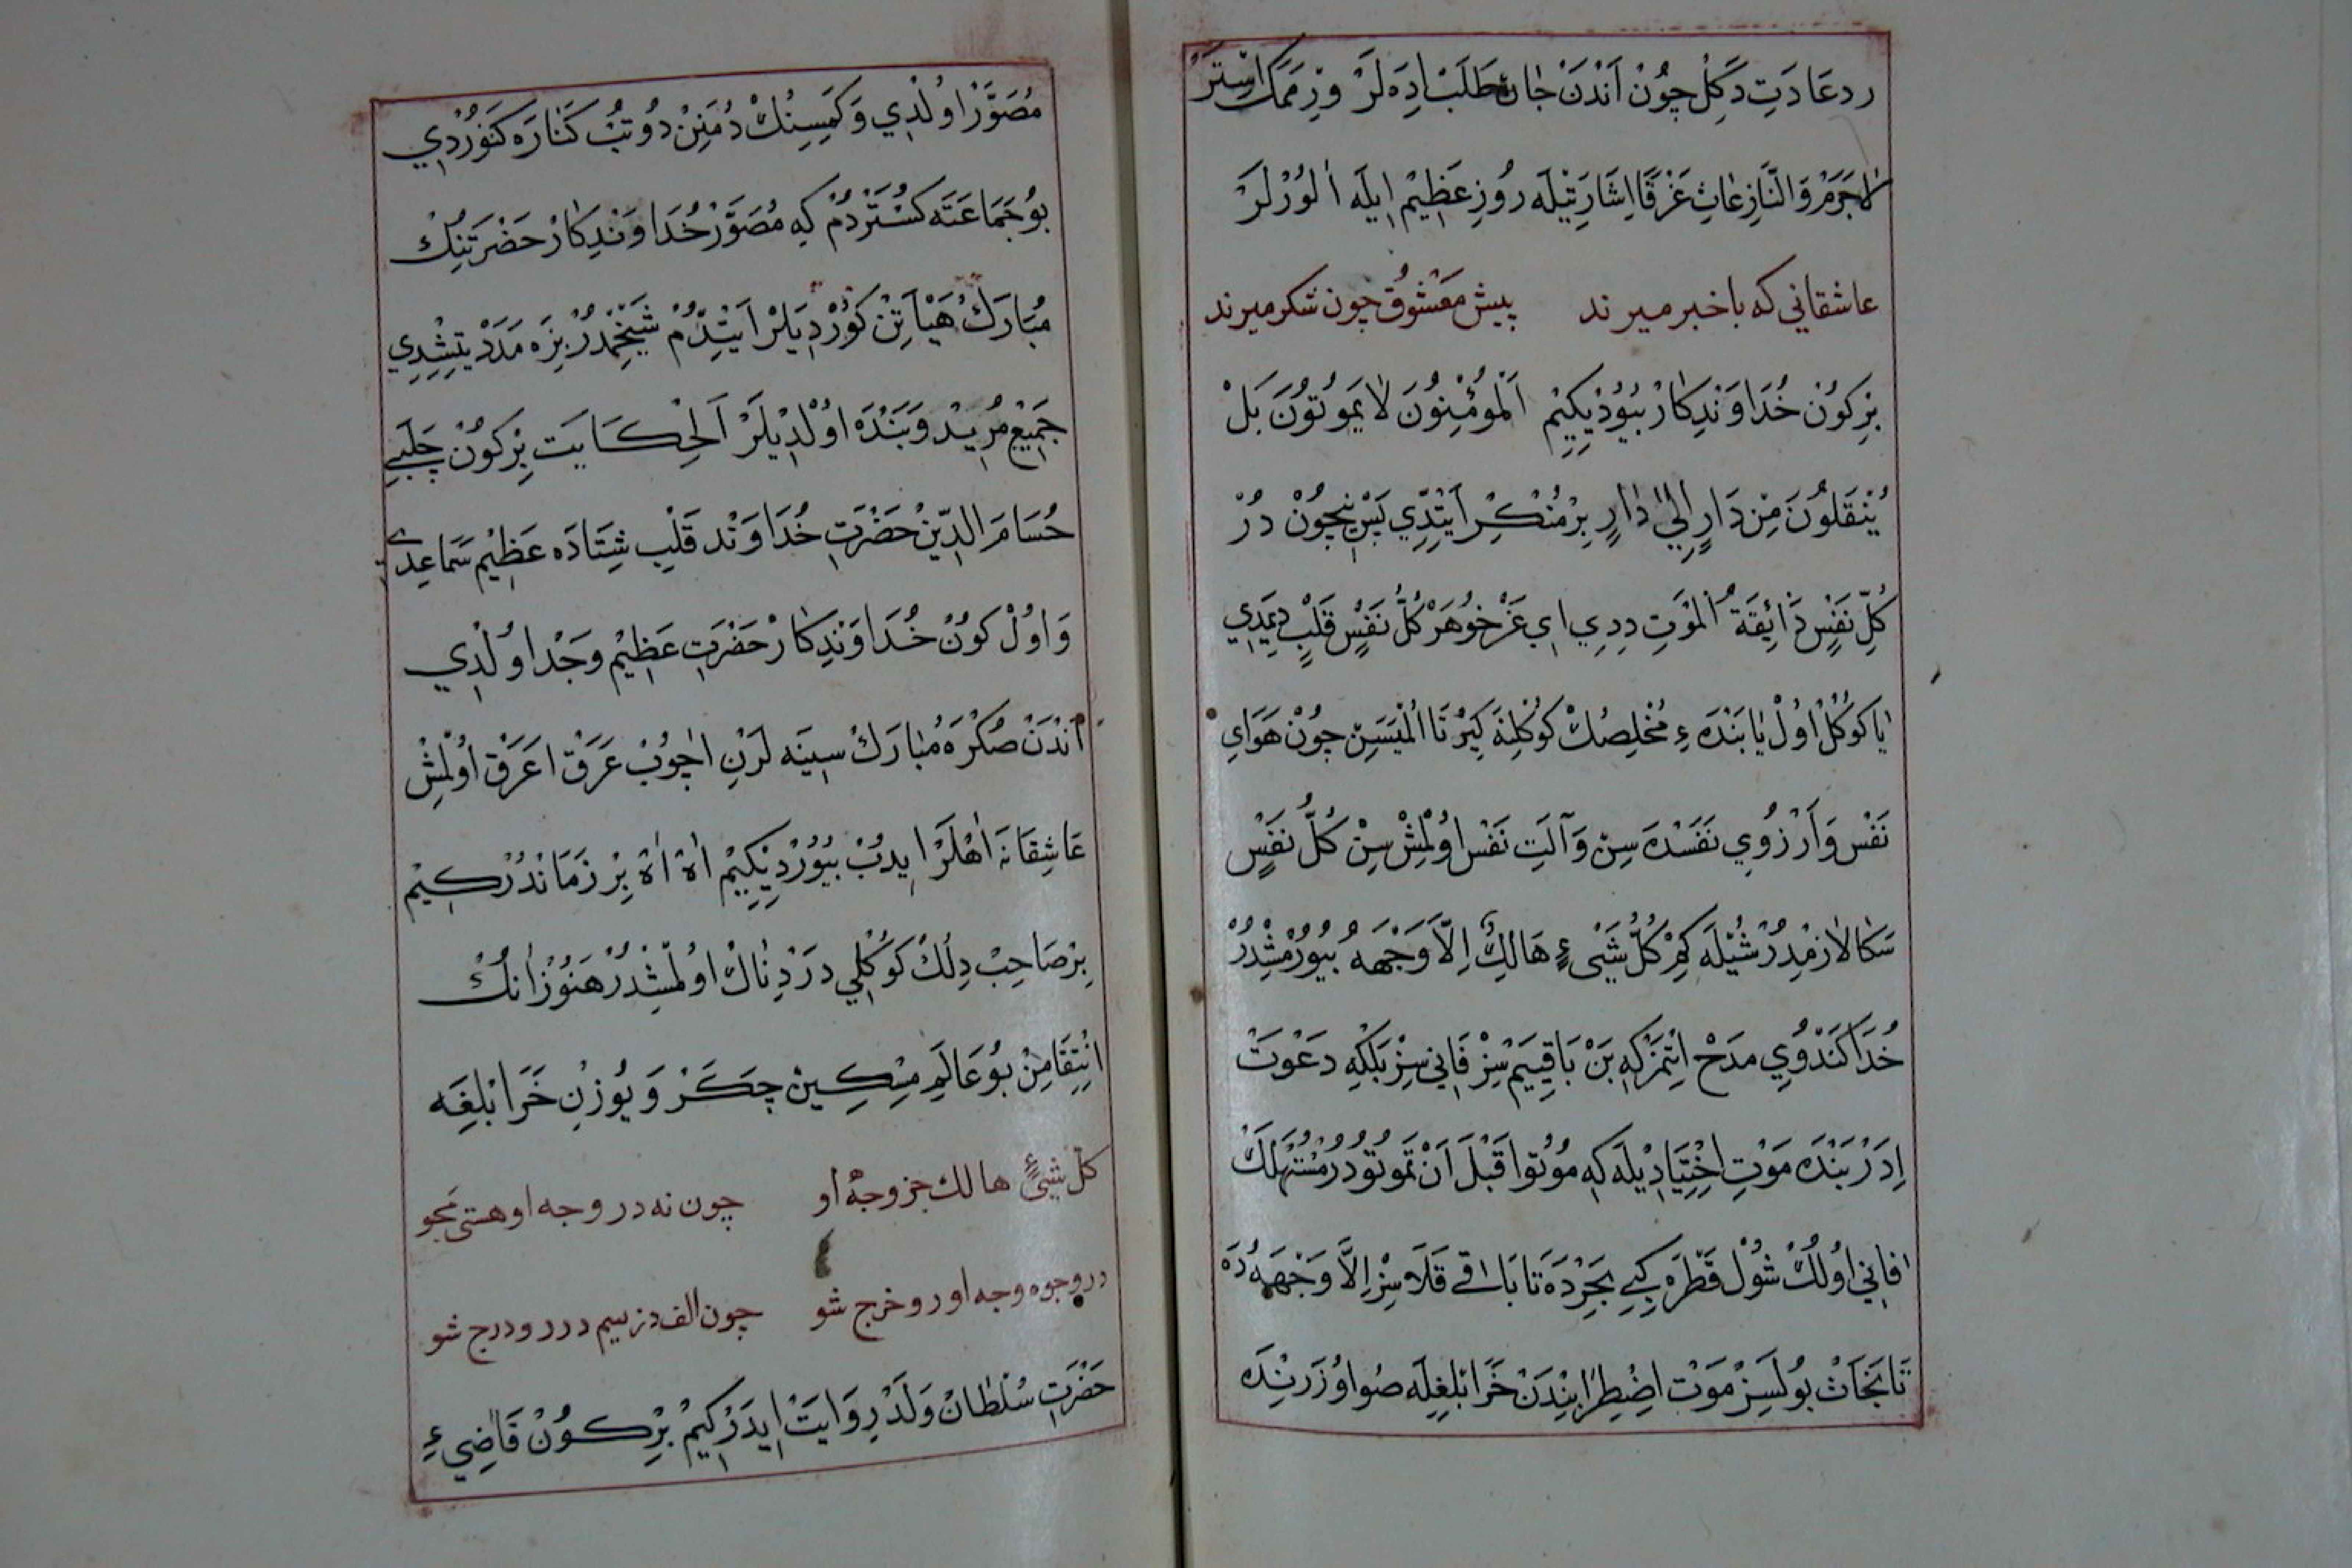 رد عَادَتِ دَكِلْ چُونْ اَنْدَنْ جَانْ طَلَبْ ادَِه لَرْ وِرْمَمَكْ اِسْتَرْ
لَاجَرَمْ وَالنَّازِعَاتِ غَرْقًا اِشَارَتِيْلَه رُوزِ عَظِيْمْ اِيلَه الُورْلَرْ
عاشقاني كه باخبر ميرند پيش مَعْشُوقْ چون شكر ميرند
بِرْكُونْ خُدَاوَنْدِكَارْ بُيُوْرْدِيكِيْم اَلْمُؤْمِنُونَ لَا يَمُوتُوُنَ بَلْ
يُنْقَلُونَ مِنْ دَارٍ اِلَي دَارٍ بِرْ مُنْكِرْ اَيِتْدِّي پَسْ نِيچُونْ دُرْ
كُلُّ نَفْسٍ ذَائِقَةُ الْمَوْتِ دِدِي اي غَرْخُوُاهَرْ كُلُّ نَفْسٍ قَلْبٍ دِيمَدِي
يَا كُوكُلْ اُولْ يَا بَنْدَهءِ مُخْلِصُكْ كُوكْلِنَه كِيرْ تَا اُلْمَيَسِنْ چُونْ هَوَايِ
نَفْس وَ اَرْزُوِي نَفَسْدَه سِنْ وَ آلَتِ نَفْس اُولْمِشْ سِنْ كُلُّ نَفْسٍ
سَكَا لَازِمْدِرْ شُيْلَه كِمْ كُلُّ شَيْءٍ هَالِكٌ اِلَّا وَجْهَهُ بُيُورْمِشْدُرْ
خُدَا كَنْدُوِي مَدْحْ اِتْمَزْ كِه بَنْ بَاقِيَيم سِزْ فَانِي سِزْ بَلْكِه دَعْوَتْ
اِدَرْ بَنْدَه مَوْتِ اِخْتِيَادِيْلَه كِه مُوتُوا قَبْلَ اَنْ تَمُوتُو دُرْ مُسْتَهْلَكْ
فَانِي اُولُكْ شُوْل قَطْرَه كِبِي بَحِرْدَه تَا بَاقِي قَلَاسِزْ اِلَّا وَجْهَهُ دَه
تَا نَجَاتْ بُولَسِزْ مَوْت اِضْطِرَابِنْدَنْ خَرَابْلِغِلَه صُو اوُزَرِنْدَه
مُصَوَّرْ اوُلْدِي وَ كَمِسِنُكْ دُمَنِنْ دُوتُبْ كَنَارَه كَتُورْدِي
بُو جَمَاعَتَه كُسْتَرْدُمْ كِه مُصَوَّرْ خُدَاوَنْدِكَارْ حَضْرَتِنِكْ
مُبَارَكْ هَيْأَتِنْ كُوْرْدِيَلَرْ اَيْتِدِّمْ شَيْخِمْدُرْ بِزَه مَدَدْ يَتِشْدِي
جَمِيْعِ مُرِيْدْ وَ بَنْدَه اوُلْدِيلَرْ اَلْحِكَايَت بِرْكُونْ چَلَبِي
حُسَامَ الدِّينْ حَضْرَتِ خُدَاوَنْد قَلْبِ شِتَادَه عَظِيْم سَمَاعِدي
وَ اوُلْ كُونْ خُدَاوَنْدِكَارْ حَضْرَتِ عَظِيْمْ وَجْد اوُلْدِي
اَنْدَنْ صُكْرَه مُبَارَكْ سِينَه لَرْنِ اچُوبْ عَرَقْ ا عَرَقْ اوُلْمِشْ
عَاشِقَانَه اهْلَرْ ايدُبْ بُيُوُرْدِيْكِيْم اَهْ اَهْ بِرْ زَمَانْدُرْ كِيْم
بِرْ صَاحِبْ دِلُكْ كُوكْلِي دَرْدِنَاكْ اوُلْمِشْدُرْ هَنُوُزْ اَنُكْ
اِنْتِقَامِنْ بُو عَالَمِ مِسْكِينْ چَكَرْ وَ يُوزِنِ خَرَابْلِغَه
كلّ شيءٍ هالك جز وجه او چون نه در وجه او هستي مجو
در وجوه وجه او رو خرج شو چون الف در بيم در رو درج شو
حَضْرَتِ سُلْطَانْ وَلَدْ رِوَايَتْ اِيدَرْ كِيْمْ بِرْكُونْ قَاضِيءِ